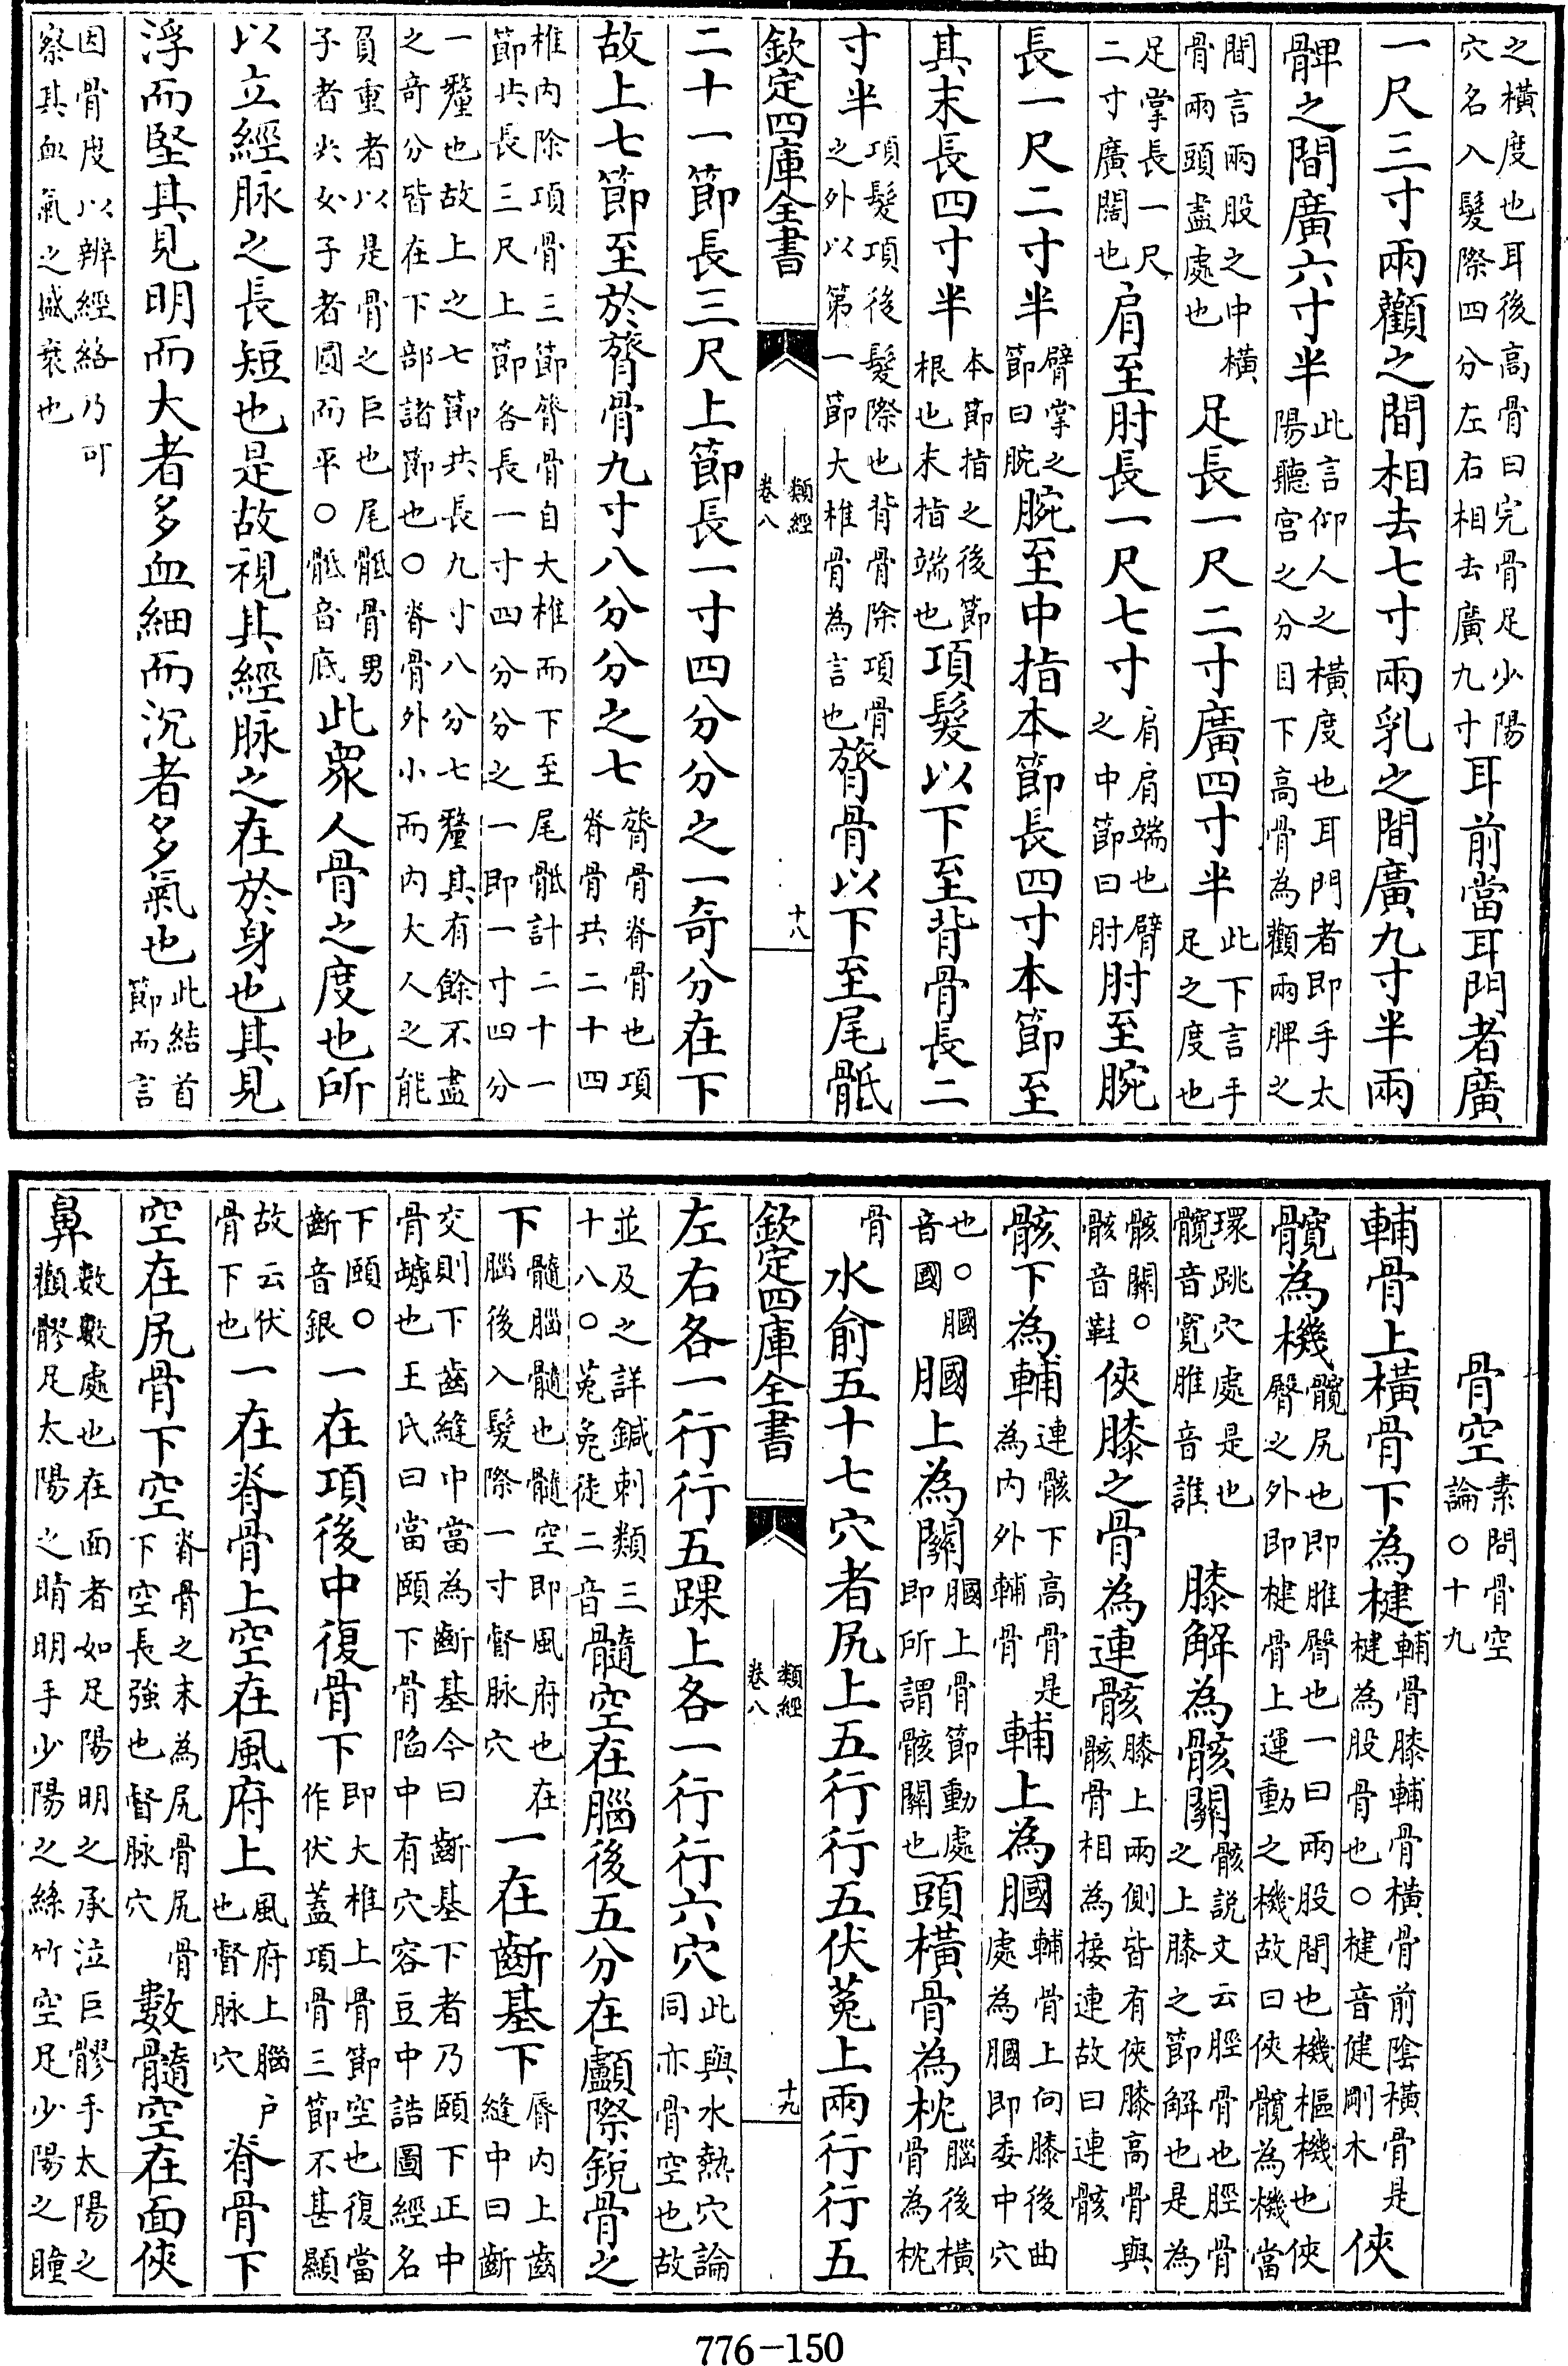 之橫度也耳後高骨曰完骨足少陽
穴名入髮際四分左右相去廣九寸耳前當耳門者廣
一尺三寸兩顴之間相去七寸兩乳之間廣九寸半兩
髀之間廣六寸半此言仰人之橫度也耳門者即手太
陽聽宮之分目下高骨為顴兩髀之
間言兩股之中橫
骨兩頭盡處也足長一尺二寸廣四寸半此下言手
足之度也
足掌長一尺
二寸廣闊也肩至肘長一尺七寸肩肩端也臂
之中節曰肘肘至腕
長一尺二寸半臂掌之
節曰腕腕至中指本節長四寸本節至
其末長四寸半本節指之後節
根也末指端也項髮以下至背骨長二
寸半項髮項後髮際也背骨除項骨
之外以第一節大椎骨為言也膂骨以下至尾骶
欽定四庫全書
類經
卷八
十八
二十一節長三尺上節長一寸四分分之一奇分在下
故上七節至於膂骨九寸八分分之七膂骨脊骨也項
脊骨共二十四
椎内除項骨三節膂骨自大椎而下至尾骶計二十一
節共長三尺上節各長一寸四分分之一即一寸四分
一釐也故上之七節共長九寸八分七釐其有餘不盡
之奇分皆在下部諸節也○脊骨外小而内大人之能
負重者以是骨之巨也尾骶骨男
子者尖女子者圓而平○骶音底此衆人骨之度也所
以立經脉之長短也是故視其經脉之在於身也其見
浮而堅其見明而大者多血細而沉者多氣也此結首
節而言
因骨度以辨經絡乃可
察其血氣之盛衰也
骨空素問骨空
論○十九
輔骨上橫骨下為楗輔骨膝輔骨橫骨前陰橫骨是
楗為股骨也○楗音健剛木俠
髖為機髖尻也即脽臀也一曰兩股間也機樞機也俠
臀之外即楗骨上運動之機故曰俠髖為機當
環跳穴處是也
髖音寬脽音誰膝解為骸關骸説文云脛骨也脛骨
之上膝之節解也是為
骸關○
骸音鞋俠膝之骨為連骸膝上兩側皆有俠膝高骨與
骸骨相為接連故曰連骸
骸下為輔連骸下高骨是
為内外輔骨輔上為膕輔骨上向膝後曲
處為膕即委中穴
也○膕
音國膕上為關膕上骨節動處
即所謂骸關也頭橫骨為枕腦後橫
骨為枕
骨水俞五十七穴者尻上五行行五伏菟上兩行行五
欽定四庫全書
類經
卷八
十九
左右各一行行五踝上各一行行六穴此與水熱穴論
同亦骨空也故
並及之詳鍼刺類三
十八○菟兔徒二音髓空在腦後五分在顱際銳骨之
下髓腦髓也髓空即風府也在
腦後入髮際一寸督脉穴一在齗基下唇内上齒
縫中曰齗
交則下齒縫中當為齗基今曰齗基下者乃頤下正中
骨罅也王氏曰當頤下骨陷中有穴容豆中誥圖經名
下頤○
齗音銀一在項後中復骨下即大椎上骨節空也復當
作伏蓋項骨三節不甚顯
故云伏
骨下也一在脊骨上空在風府上風府上腦户
也督脉穴脊骨下
空在尻骨下空脊骨之末為尻骨尻骨
下空長強也督脉穴數髓空在面俠
鼻數數處也在面者如足陽明之承泣巨髎手太陽之
顴髎足太陽之睛明手少陽之絲竹空足少陽之瞳
776-150